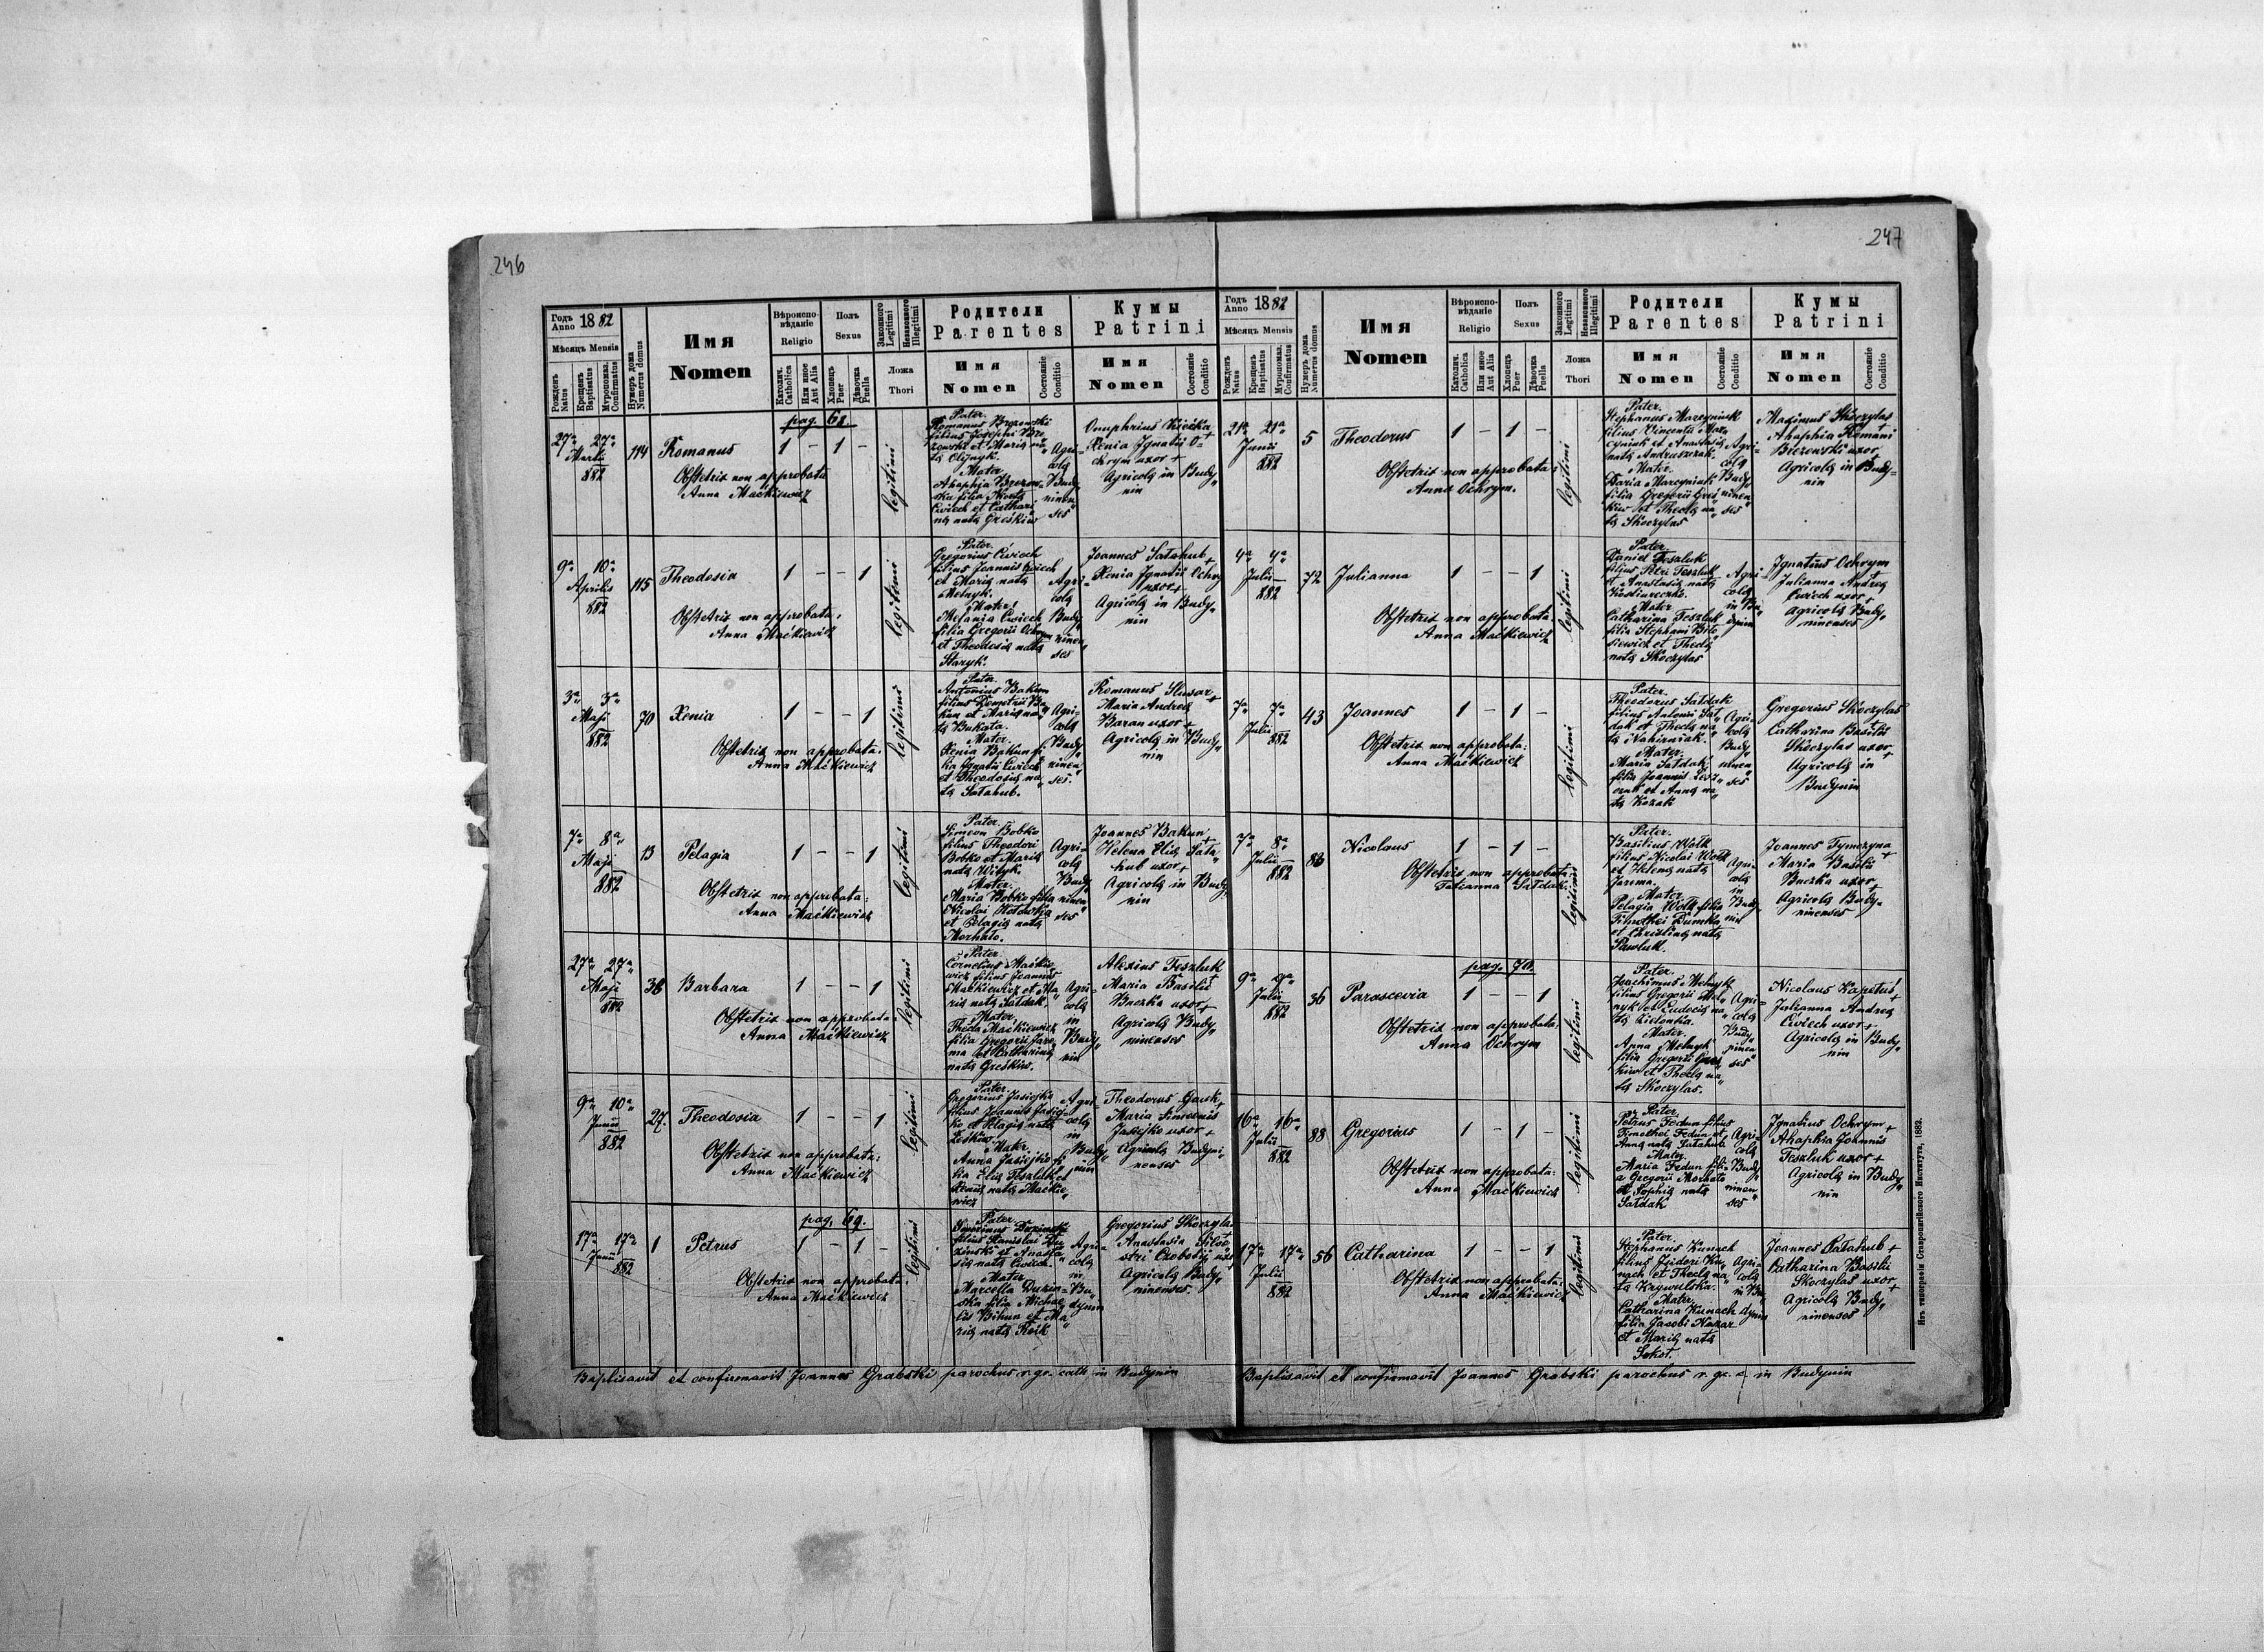 246
Годъ Anno 1882
Мѣсяцъ Mensis
Рожденъ Natus
Крещенъ Baptisatus
Муропомаз. Confirmatus
Нумеръ дома Numerus domus
Имя
Nomen
Вѣроиспо-
вѣданіе
Religio
Католич. Catholica
Или иное Aut Alia
Полъ
Sexus
Хлопецъ Puer
Дѣвочка Puella
Законного Legitimi
Незаконного Illegitimi
Ложа
Thori
Родители
Parentes
Имя
Nomen
Состояніе Conditio
Кумы
Patrini
Имя
Nomen
Состояніе Conditio
pag. 68.
27a 27a
Martii
882
114
Romanus
1 – 1 –
legitimi
Obstetrix non approbata
Anna Maćkiewicz
Pater.
Romanus Brzezowski
filius Josephi Brze
zowski et Maria na
ta Olijnyk.
Mater.
Ahaphia Brzezow
ska filia Nicolai
Ćwiech et Cathari
na nata Greśkiw
Agri-
cola
Budy
ninen
ses
Onuphrius Kiećka
Xenia Ignatii O-
chrym uxor +
Agricola in Budy
nin
9a 10a
Aprilis
882
115
Theodosia
1 – – 1
legitimi
Obstetrix non approbata:
Anna Maćkiewicz
Pater.
Gregorius Ćwiech
filius Joannis Ćwiech
et Maria nata
Melnyk.
Mater.
Melania Ćwiech
filia Gregorii Ochrym
et Theodosia nata
Staryk.
Agri
cola
Budy
ninen
ses
Joannes Satahub +
Xenia Ignatii Ochry
uxor +
Agricola in Budy
nin
3a 3a
Maji
882
70
Xenia
1 – – 1
legitimi
Obstetrix non approbata.
Anna Maćkiewicz
Pater.
Antonius Bakun
filius Demetrii Ba
kun et Maria na
ta Bukata.
Mater.
Xenia Bakun fi
lia Ignatii Ćwiech
et Theodosia na
ta Satahub.
Agri-
cola
Budy
ninen
ses.
Romanus Slusar +
Maria Andrea
Baran uxor +
Agricola in Budy
nin
7a 8a
Maji
882
13
Pelagia
1 – – 1
legitimi
Obstetrix non approbata:
Anna Maćkiewicz
Pater.
Simeon Bobko
filius Theodori
Bobko et Maria
nata Wityk.
Mater.
Maria Bobko filia
Nicolai Hołowka
et Pelagia nata
Morhało.
Agri-
cola
Budy
ninen
ses
Joannes Bakun +
Helena Elia Sata
hub uxor +
Agricola in Budy
nin
27a 27a
Maji
882
38
Barbara
1 – – 1
legitimi
Obstetrix non approbata
Anna Maćkiewicz
Pater
Cornelius Maćkie
wicz filius Joannis
Maćkiewicz et Ma
ria nata Sałdak.
Mater.
Thecla Maćkiewicz
filia Gregorii Jare
ma et Catharina
nata Greśkiw.
Agri-
cola
in
Budy
nin
Alexius Feszluk
Maria Basilii
Buczka uxor +
Agricola Budy
ninenses
9a 10a
Junii
882
27.
Theodosia
1 – – 1
legitimi
Obstetrix non approbata:
Anna Maćkiewicz
Pater.
Gregorius Jasiejko
filius Joannis Jasiej
ko et Pelagia nata
Leśkiw.
Mater.
Anna Jasiejko fi
lia Elia Feszluk et
Xenia nata Maćkie
wicz
Agri
cola
in
Budy
nin
Theodorus Gauk +
Maria Simeonis
Jasiejko uxor +
Agricola Budyni
nenses
pag. 69.
17a 17a
Junii
882
1
Petrus
1 – 1 –
legitimi
Obstetrix non approbata:
Anna Maćkiewicz
Pater
filius Stanislai
et Anasta
sia nata Ćwiech.
Mater
Marcella
ska filia Michae
lis Bihun et Ma
ria nata Roik
Agri
cola
in
Bu
dynin
Gregorius Skoczylas
Anastasia Silve
stri Czobotij uxor
Agricola Budy
ninenses.
Baptisavit et confirmavit Joannes Grabski parochus r. gr. cath in Budynin
247
Годъ Anno 1882
Мѣсяцъ Mensis
Рожденъ Natus
Крещенъ Baptisatus
Муропомаз. Confirmatus
Нумеръ дома Numerus domus
Имя
Nomen
Вѣроиспо-
вѣданіе
Religio
Католич. Catholica
Или иное Aut Alia
Полъ
Sexus
Хлопецъ Puer
Дѣвочка Puella
Законного Legitimi
Незаконного Illegitimi
Ложа
Thori
Родители
Parentes
Имя
Nomen
Состояніе Conditio
Кумы
Patrini
Имя
Nomen
Состояніе Conditio
21a 21a
Junii
882
5
Theodorus
1 – 1 –
legitimi
Obstetrix non approbata:
Anna Ochrym.
Pater.
Stephanus Marcyniuk
filius Vincentii Mar
cyniuk et Anastasia
nata Andruszczak.
Mater.
Daria Marcyniuk
filia Gregorii Greś
kiw et Thecla na
ta Skoczylas
Agri-
cola
Budy
ninen
ses
Maximus Skoczylas +
Ahaphia Romani
Brzezowski uxor +
Agricola in Budy-
nin
4a 4a
Julii
882
72
Julianna
1 – – 1
legitimi
Obstetrix non approbata.
Anna Maćkiewicz
Pater.
Daniel Feszluk
filius Petri Feszluk
et Anastasia nata
Mater
Catharina Feszluk
filia Stephani Bile
siewicz et Thecla
nata Skoczylas
Agri
cola
in Bu
dynin
Ignatius Ochrym
Julianna Andrea
Ćwiech uxor +
agricola Budy
ninenses
7a 7a
Julii
882
43
Joannes
1 – 1 –
legitimi
Obstetrix non approbata:
Anna Maćkiewicz
Pater.
Theodorus Sałdak
filius Antonii Sał
dak et Thecla na
ta Nahirniak.
Mater.
Maria Sałdak
filia Joannis Lesz
czuk et Anna na
ta Kozak
Agri-
cola
Budy
ninen
ses
Gregorius Skoczylas
Catharina Basilii
Skoczylas uxor +
Agricola in
Budynin
7a 8a
Julii
882
Nicolaus
1 – 1 –
legitimi
Obstetrix non approbata:
Tatianna Sałdak.
Pater.
Basilius Wołk
filius Nicolai Wołk
et Helena nata
Jarema.
Mater.
Pelagia Wołk filia
Timothei Dumka
et Christina nata
Pawluk.
Agri
cola
in
Budy
nin
Joannes Tymczyna +
Maria Basilii
Buczka uxor +
Agricola Budy-
ninenses
pag. 70.
9a 9a
Julii
882
36
Parascevia
1 – – 1
legitimi
Obstetrix non approbata:
Anna Ochrym
Pater.
Joachimus Melnyk
filius Gregorii Mel
nyk et Eudocia na
ta Zielonka.
Mater.
Anna Melnyk
filia Gregorii Greś
kiw et Thecla na
ta Skoczylas.
Agri-
cola
Budy
ninen
ses
Nicolaus Kapeluś +
Julianna Andrea
Ćwiech uxor +
Agricola in Budy
nin
16a 16a
Julii
882
88
Gregorius
1 – 1 –
legitimi
Obstetrix non approbata:
Anna Maćkiewicz
Pater.
Petrus Fedun filius
Timothei Fedun et
Anna nata Satahub
Mater.
Maria Fedun fili
a Gregorii Morhało
et Sophia nata
Sałdak
Agri-
cola
Budy
ninen
ses
Ignatius Ochrym +
Ahaphia Joannis
Feszluk uxor +
Agricola in Budy
nin
17a 17a
Julii
882
56
Catharina
1 – – 1
legitimi
Obstetrix non approbata:
Anna Maćkiewicz
Pater.
Stephanus Kunach
filius Isidori Ku
nach et Thecla na
ta Krywulska.
Mater.
Catharina Kunach
filia Jacobi Huzar
et Maria nata
Sokoł.
Agri-
cola
in Bu
dynin
Joannes Satahub +
Catharina Basilii
Skoczylas uxor +
Agricola Budy
ninenses
Baptisavit et confirmavit Joannes Grabski parochus r. gr. c. in Budynin
Изъ типографіи Ставропигійского Института, 1882.